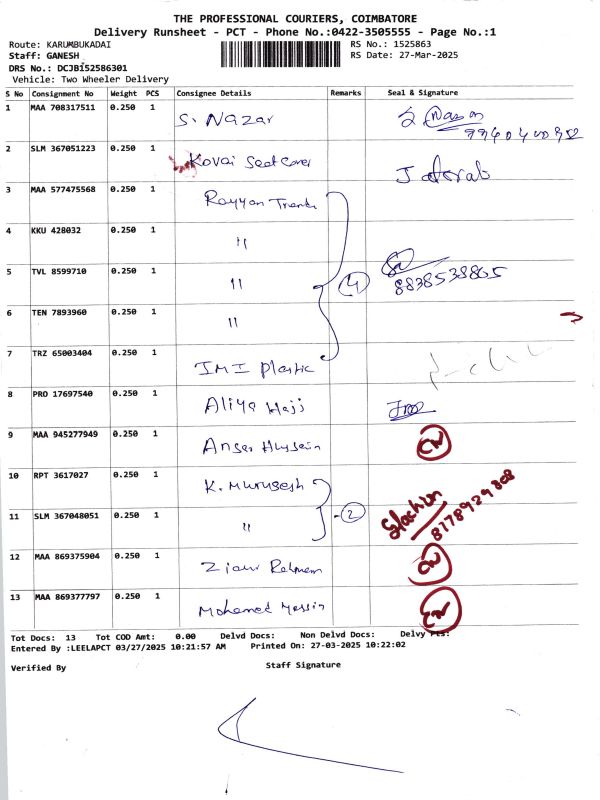 THE PROFESSIONAL COURIERS, COIMBATORE
Delivery Runsheet - PCT - Phone No.:0422-3505555 - Page No.:1
Route: KARUMBUKADAI RS No.: 1525863
Staff: GANESH RS Date: 27-Mar-2025
DRS No.: DCJB152586301
Vehicle: Two Wheeler Delivery
S No Consignment No Weight PCS Consignee Details Remarks Seal & Signature
1 MAA 708317511 0.250 1 S. Nazar
2 SLM 367051223 0.250 1 Kovai Seat Cover
3 MAA 577475568 0.250 1 Rayyan
4 KKU 428032 0.250 1 "
5 TVL 8599710 0.250 1 " 4 8838538865
6 TEN 7893960 0.250 1 "
7 TRZ 65003404 0.250 1 IMI Plastic
8 PRO 17697540 0.250 1 Aliya Haji
9 MAA 945277949 0.250 1 Anser Hussain
10 RPT 3617027 0.250 1 K. Murugesh
11 SLM 367048051 0.250 1 " - 2 8178929808
12 MAA 869375904 0.250 1 Ziaur Rahman
13 MAA 869377797 0.250 1 Mohamed
Tot Docs: 13 Tot COD Amt: 0.00 Delvd Docs: Non Delvd Docs: Delvy Pts:
Entered By :LEELAPCT 03/27/2025 10:21:57 AM Printed On: 27-03-2025 10:22:02
Verified By Staff Signature